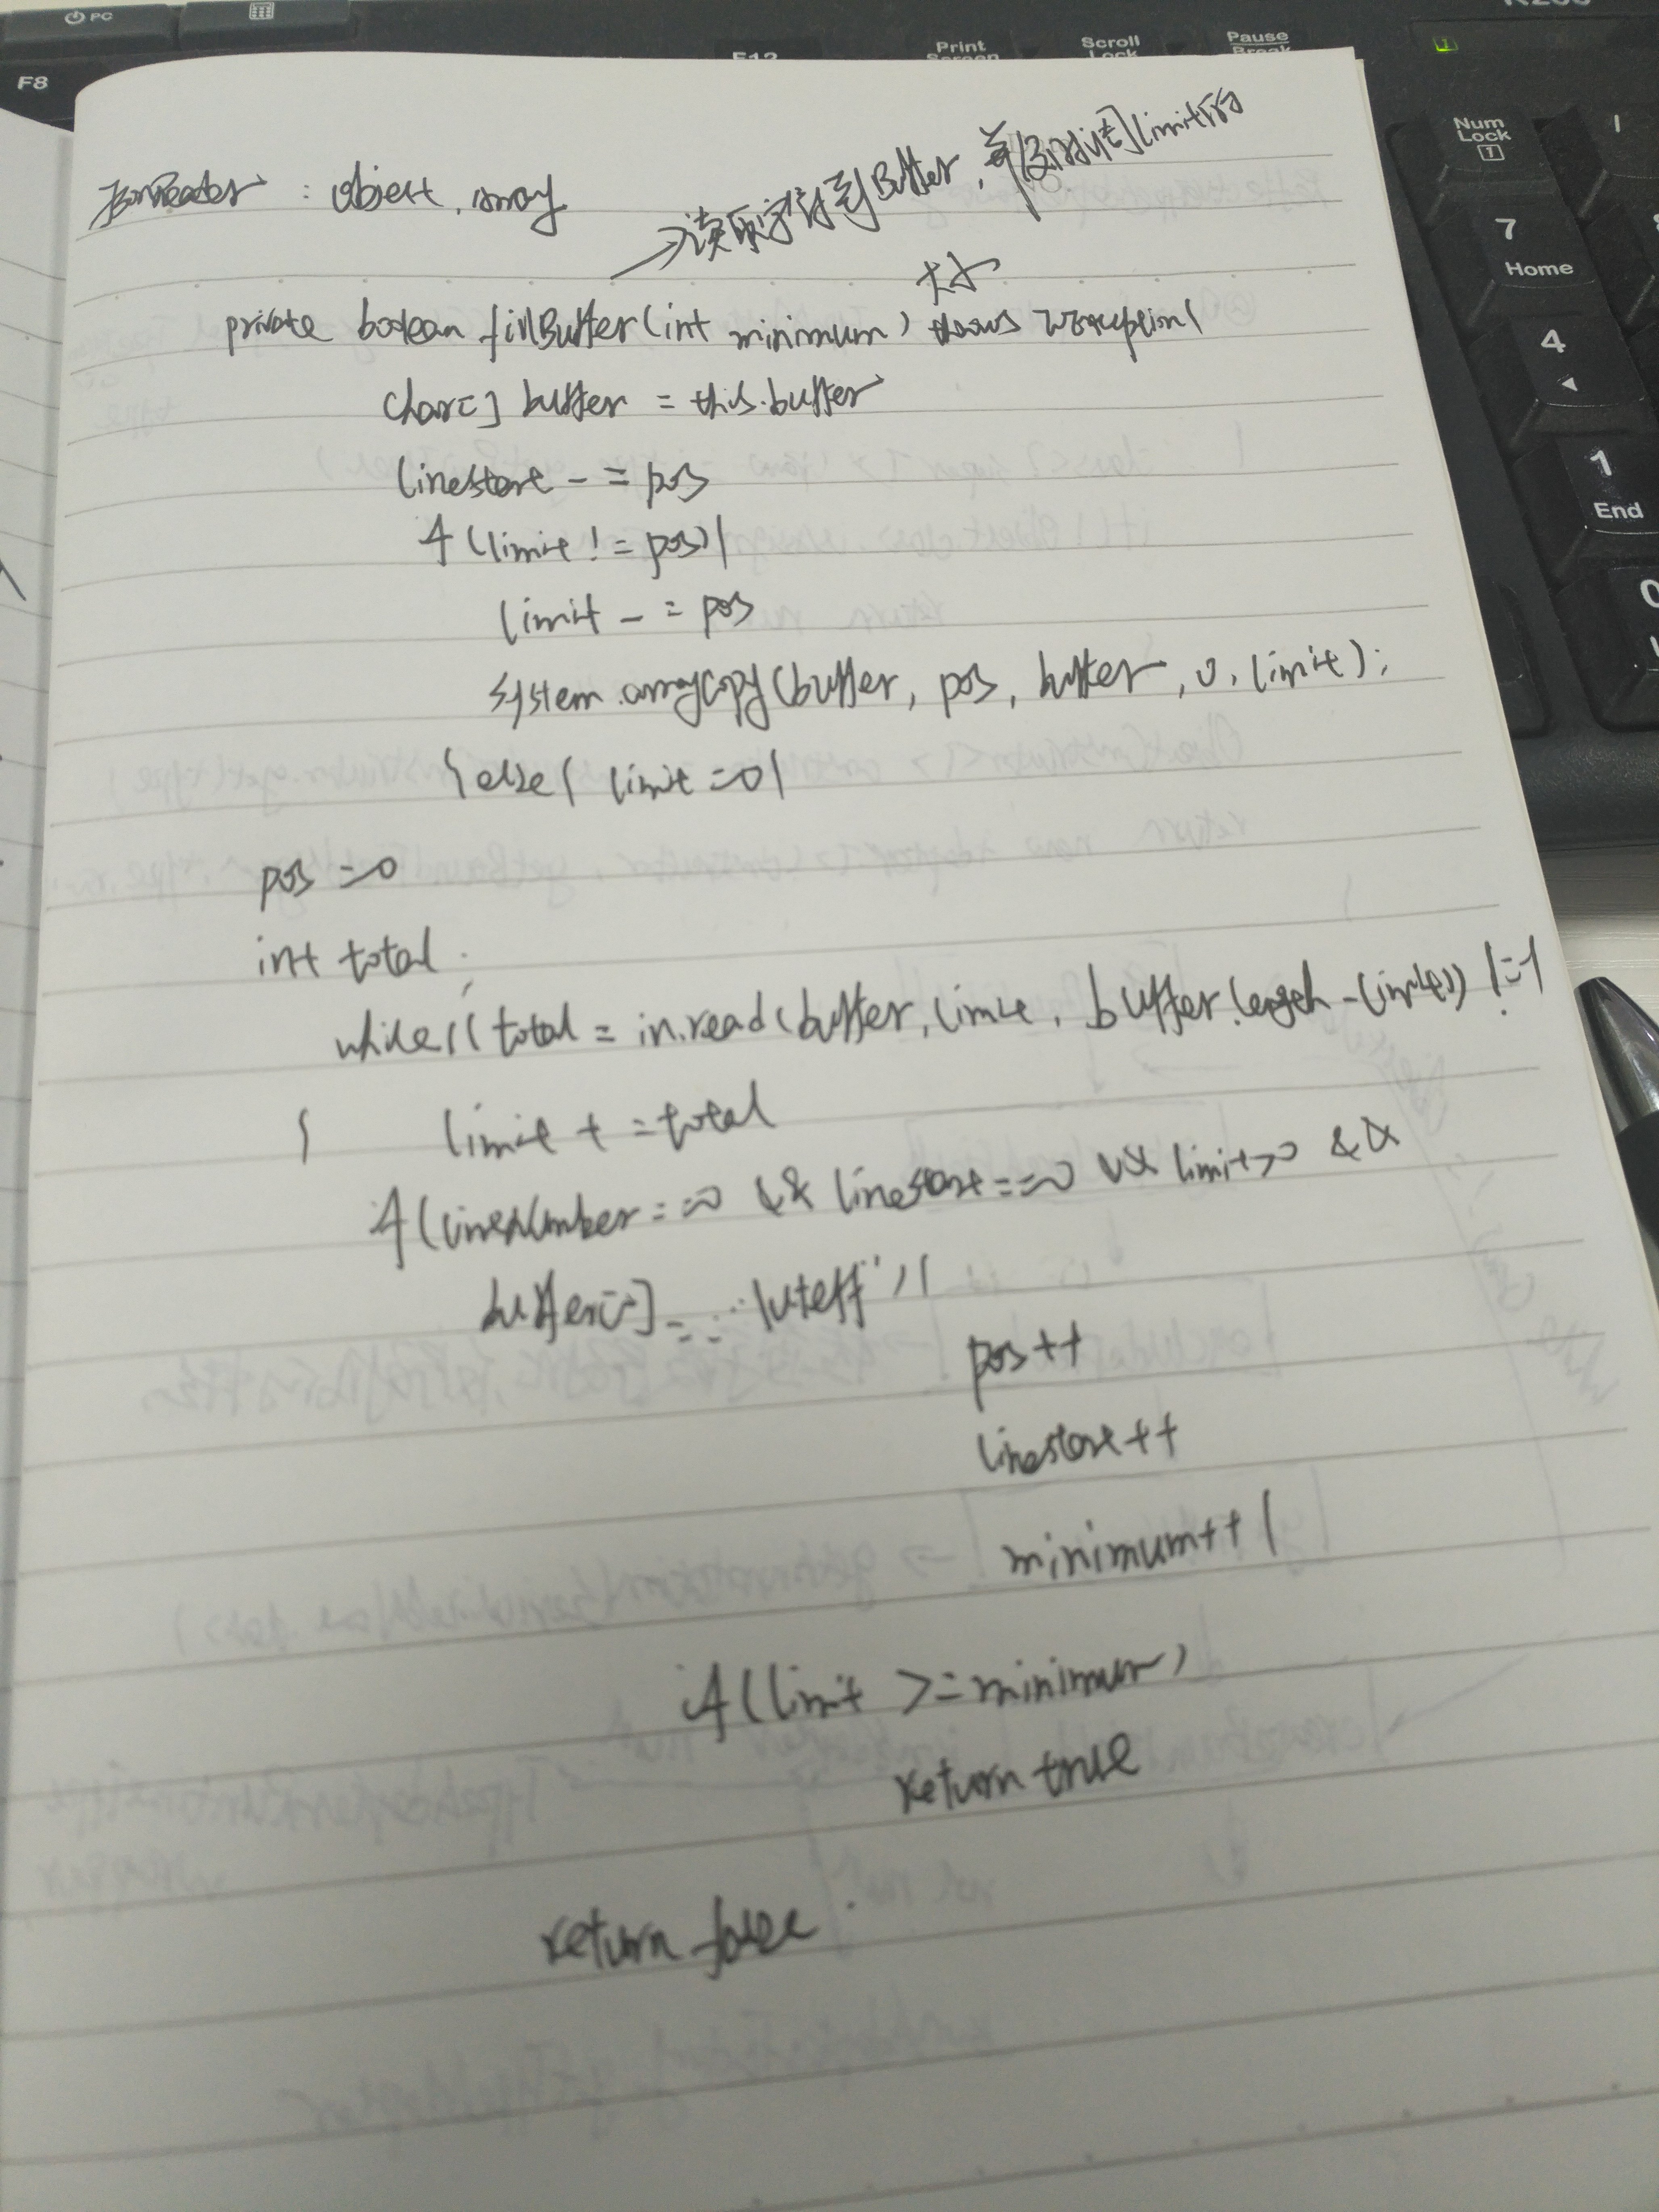 PC
F8
F12
Print
Screen
Scroll
Lock
Pause
Break
Num
Lock
7
Home
4
1
End
0
JsonReader : object, array
→读取字符到Buffer,
limit
大小
private boolean fillBuffer(int minimum) throws IOException{
char[] buffer = this.buffer
lineStart -= pos
if (limit != pos){
limit -= pos
System.arrayCopy(buffer, pos, buffer, 0, limit);
}else{ limit =0}
pos =0
int total;
while((total = in.read(buffer, limit, buffer.length - limit)) != -1
{ limit += total
if(lineNumber==0 && lineStart==0 && limit>0 &&
buffer[0] == '\ufeff'){
pos++
lineStart++
minimum++}
if(limit >= minimum)
return true
return false